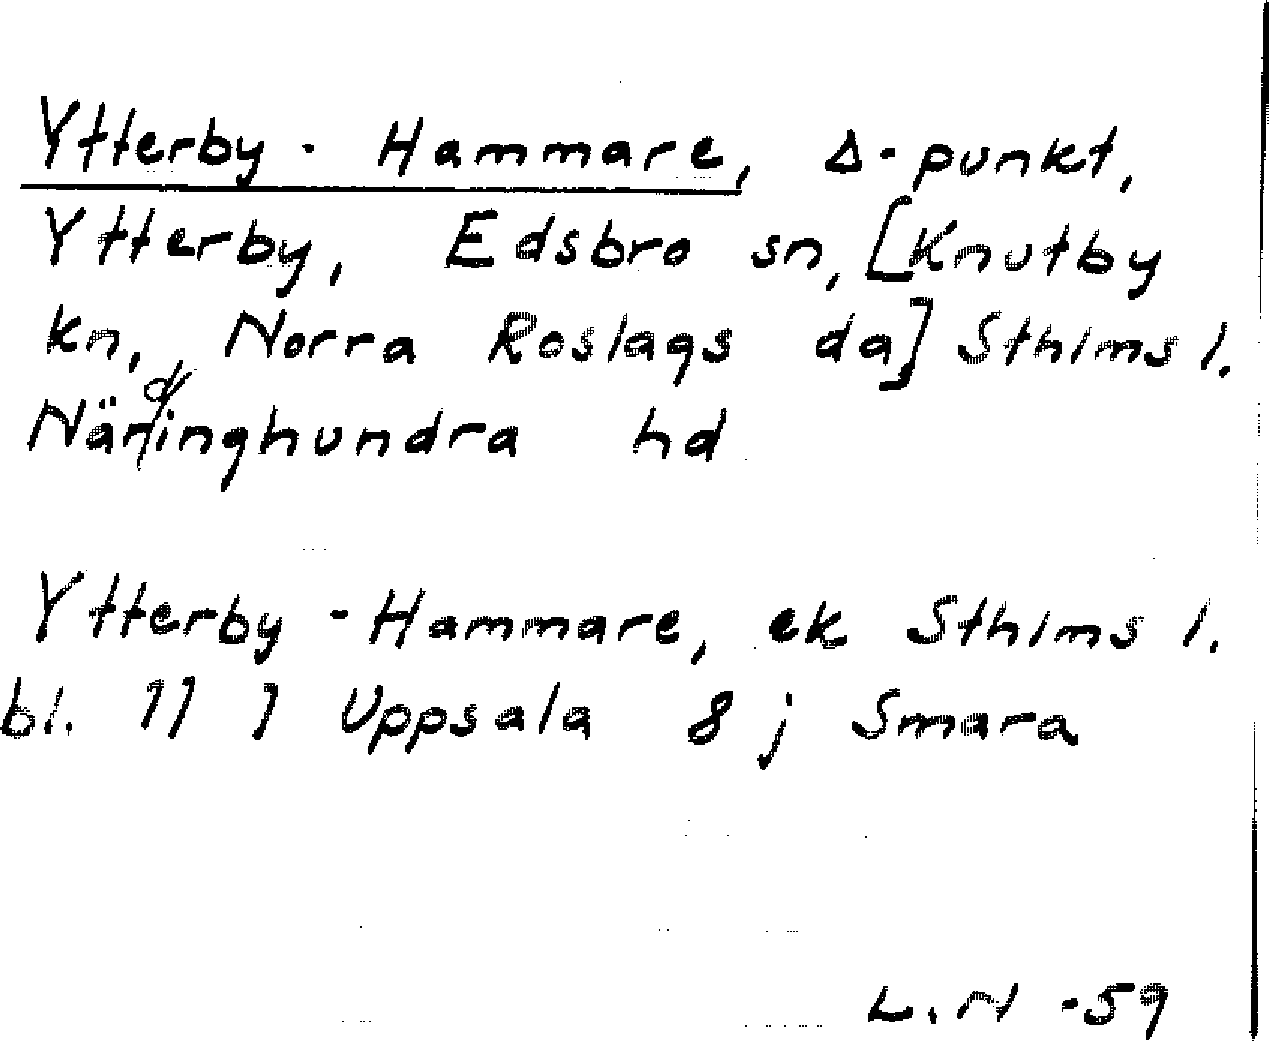 Ytterby - Hammare, Δ-punkt,
Ytterby, Edsbro sn, [Knutby
kn, Norra Roslags da] Sthlms l.
Närdinghundra hd
Ytterby - Hammare, ek Sthlms l.
bl. 11 I Uppsala 8 j Smara
L. N -59